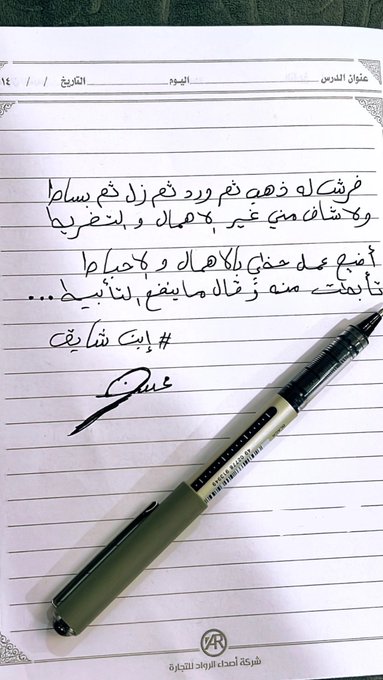 عنوان الدرس اليوم التاريخ / / ١٤
فرشت له ذهب ثم ورد ثم زل ثم بساط
ولا شاف مني غير الاهمال والتفريط
أضبع عمل حظي بالاهمال والاحباط
تأبطت منه وقال ما ينفع التأبيط...
#إبن شايق
AR
شركة أصداء الرواد للتجارة